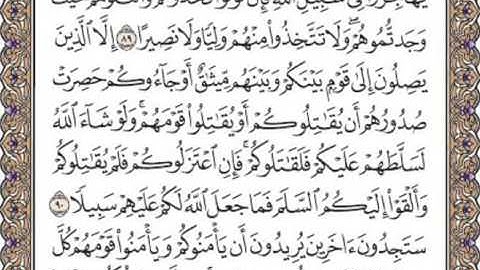 وَجَدتُّمُوهُمْ ۖ وَلَا تَتَّخِذُوا۟ مِنْهُمْ وَلِيًّا وَلَا نَصِيرًا ٨٩ إِلَّا ٱلَّذِينَ
يَصِلُونَ إِلَىٰ قَوْمٍۭ بَيْنَكُمْ وَبَيْنَهُم مِّيثَـٰقٌ أَوْ جَآءُوكُمْ حَصِرَتْ
صُدُورُهُمْ أَن يُقَـٰتِلُوكُمْ أَوْ يُقَـٰتِلُوا۟ قَوْمَهُمْ ۚ وَلَوْ شَآءَ ٱللَّهُ
لَسَلَّطَهُمْ عَلَيْكُمْ فَلَقَـٰتَلُوكُمْ ۚ فَإِنِ ٱعْتَزَلُوكُمْ فَلَمْ يُقَـٰتِلُوكُمْ
وَأَلْقَوْا۟ إِلَيْكُمُ ٱلسَّلَمَ فَمَا جَعَلَ ٱللَّهُ لَكُمْ عَلَيْهِمْ سَبِيلًا ٩٠
سَتَجِدُونَ ءَاخَرِينَ يُرِيدُونَ أَن يَأْمَنُوكُمْ وَيَأْمَنُوا۟ قَوْمَهُمْ كُلَّ